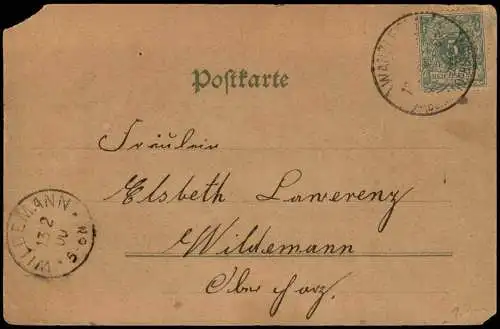 WANZLEBEN
5
Postkarte
Fräulein
Elsbeth Lawerenz
Wildemann
Ober Harz.
WILDEMANN
13 2
00
5-6N